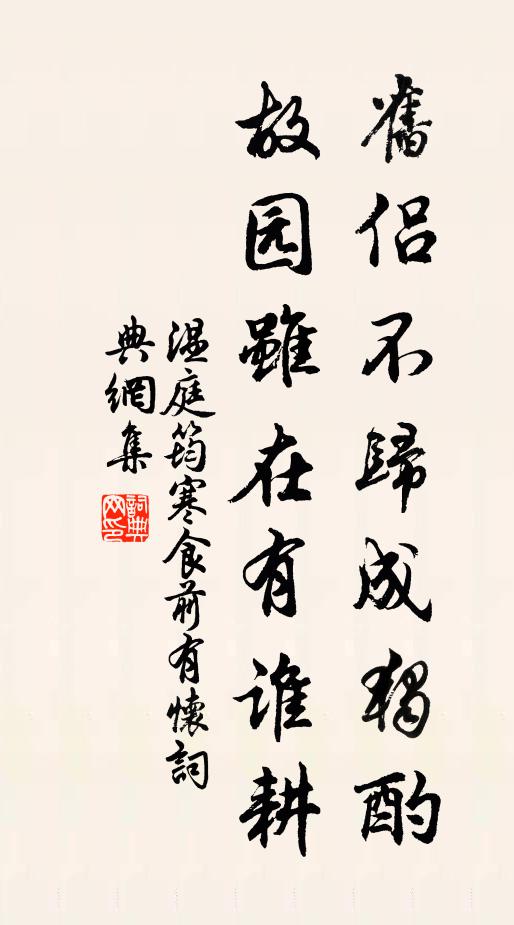 舊侣不歸成獨酌
故园雖在有谁耕
温庭筠寒食前有懷詞
典網集
詞典網印